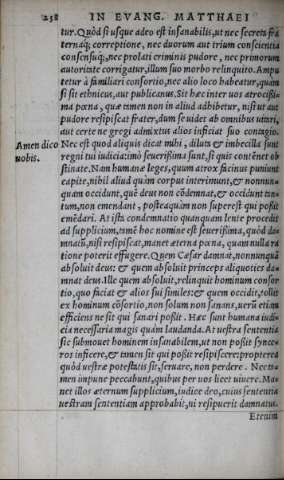 238 IN EVANG. MATTHAEI
tur. Quòd si usque adeo est insanabilis, ut nec secreta fra
terna�q; correptione, nec duorum aut trium conscientia
consensuq́;, nec prolati criminis pudore, nec primorum
autoritate corrigatur, illum suo morbo relinquito. Ampu
tetur à familiari consortio, nec alio loco habeatur, quàm
si sit ethnicus, aut publicanus. Sit hæc inter vos atrocissi-
ma pœna, quæ tamen non in aliud adhibetur, nisi ut aut
pudore resipiscat frater, dum se videt ab omnibus vitari,
aut certe ne gregi admixtus alios inficiat suo contagio.
Amen dico
vobis.
Nec est quod aliquis dicat mihi, diluta & imbecilla sunt
regni tui iudicia: imò severissima sunt, si quis contẽnet ob
stinate. Nam humanæ leges, quum atrox facinus puniunt
capite, nihil aliud quàm corpus interimunt, & nonnun-
quam occidunt, quẽ deus non cõdemnat, & occidunt tan-
tum, non emendant, posteaquàm non superest qui possit
emẽdari. At ista condemnatio quanquam lente procedit
ad supplicium, tamẽ hoc nomine est severissima, quòd da-
mnatũ, nisi resipiscat, manet æterna pœna, quam nulla ra
tione poterit effugere. Quem Cæsar damnat, nonnunquã
absoluit deus: & quem absoluit princeps aliquoties da-
mnat deus. Ille quem absoluit, relinquit hominum consor
tio, quo ficiat & alios sui similes: & quem occidit, tollit
ex hominum cõsortio, non solum non sanans, verũ etiam
efficiens ne sit qui sanari possit. Hæc sunt humana iudi-
cia necessaria magis quàm laudanda. At vestra sententia
sic submovet hominem insanabilem, ut non possit synce-
ros inficere, & tamen sit qui possit resipiscere: propterea
quòd vestræ potestatis sit, servare, non perdere. Nec ta-
men impune peccabunt, quibus per vos licet vivere. Ma-
net illos æternum supplicium, iudice deo, cuius sententia
vestram sententiam approbabit, ni resipuerit damnatus.
Etenim